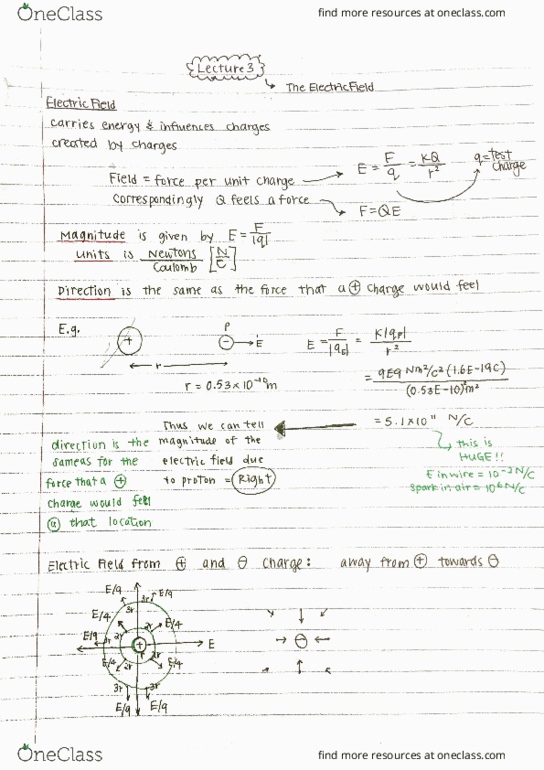 OneClass
find more resources at oneclass.com
Lecture 3
The Electric Field
Electric Field
carries energy & influences charges
created by charges
Field = force per unit charge → E = F/q = KQ/r² q = test charge
correspondingly Q feels a force → F = QE
Magnitude is given by E = F/|q|
units is Newtons/Coulomb [N/C]
Direction is the same as the force that a ⊕ charge would feel
E.g. + P − → E E = F/|q₂| = K|qp|/r²
r
r = 0.53×10⁻¹⁰m
= 9E9 Nm²/c² (1.6E-19C)/(0.53E-10)²m²
= 5.1×10¹¹ N/C
this is HUGE!!
E in wire = 10⁻² N/C
spark in air = 10⁶ N/C
Thus we can tell
magnitude of the
electric field due
to proton = Right
direction is the
same as for the
force that a ⊕
charge would feel
@ that location
Electric Field from ⊕ and ⊖ charge: away from ⊕ towards ⊖
E/9 3r 3r E/9
E/4 2r 2r E/4
E/9 3r + E
E/4 2r 2r E/4
3r 3r
E/9 E/9
−
OneClass
find more resources at oneclass.com